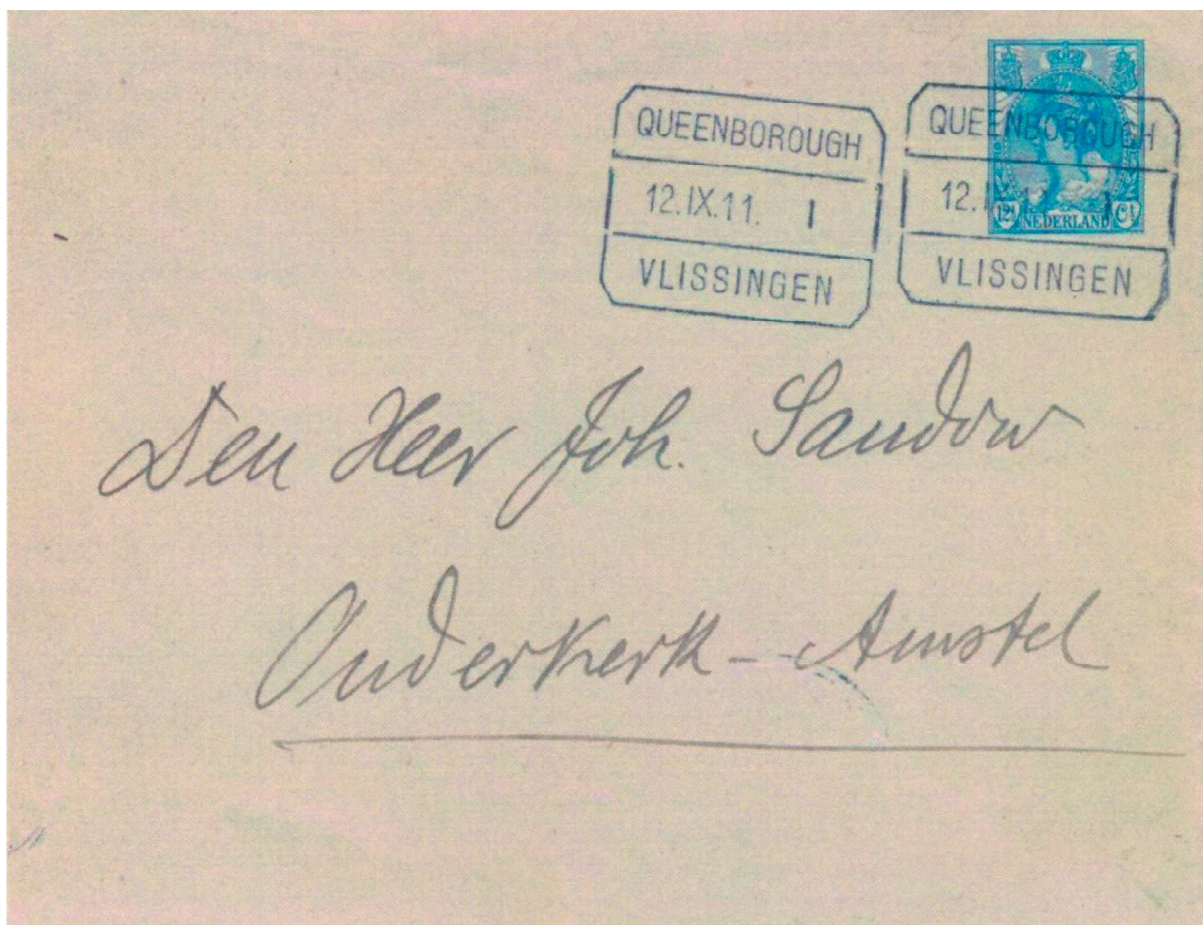 QUEENBOROUGH
12.IX.11. 1
VLISSINGEN
QUEENBOROUGH
12.IX.11. 1
VLISSINGEN
12½ Ct
NEDERLAND
Den Heer Joh. Sandow
Ouderkerk - Amstel